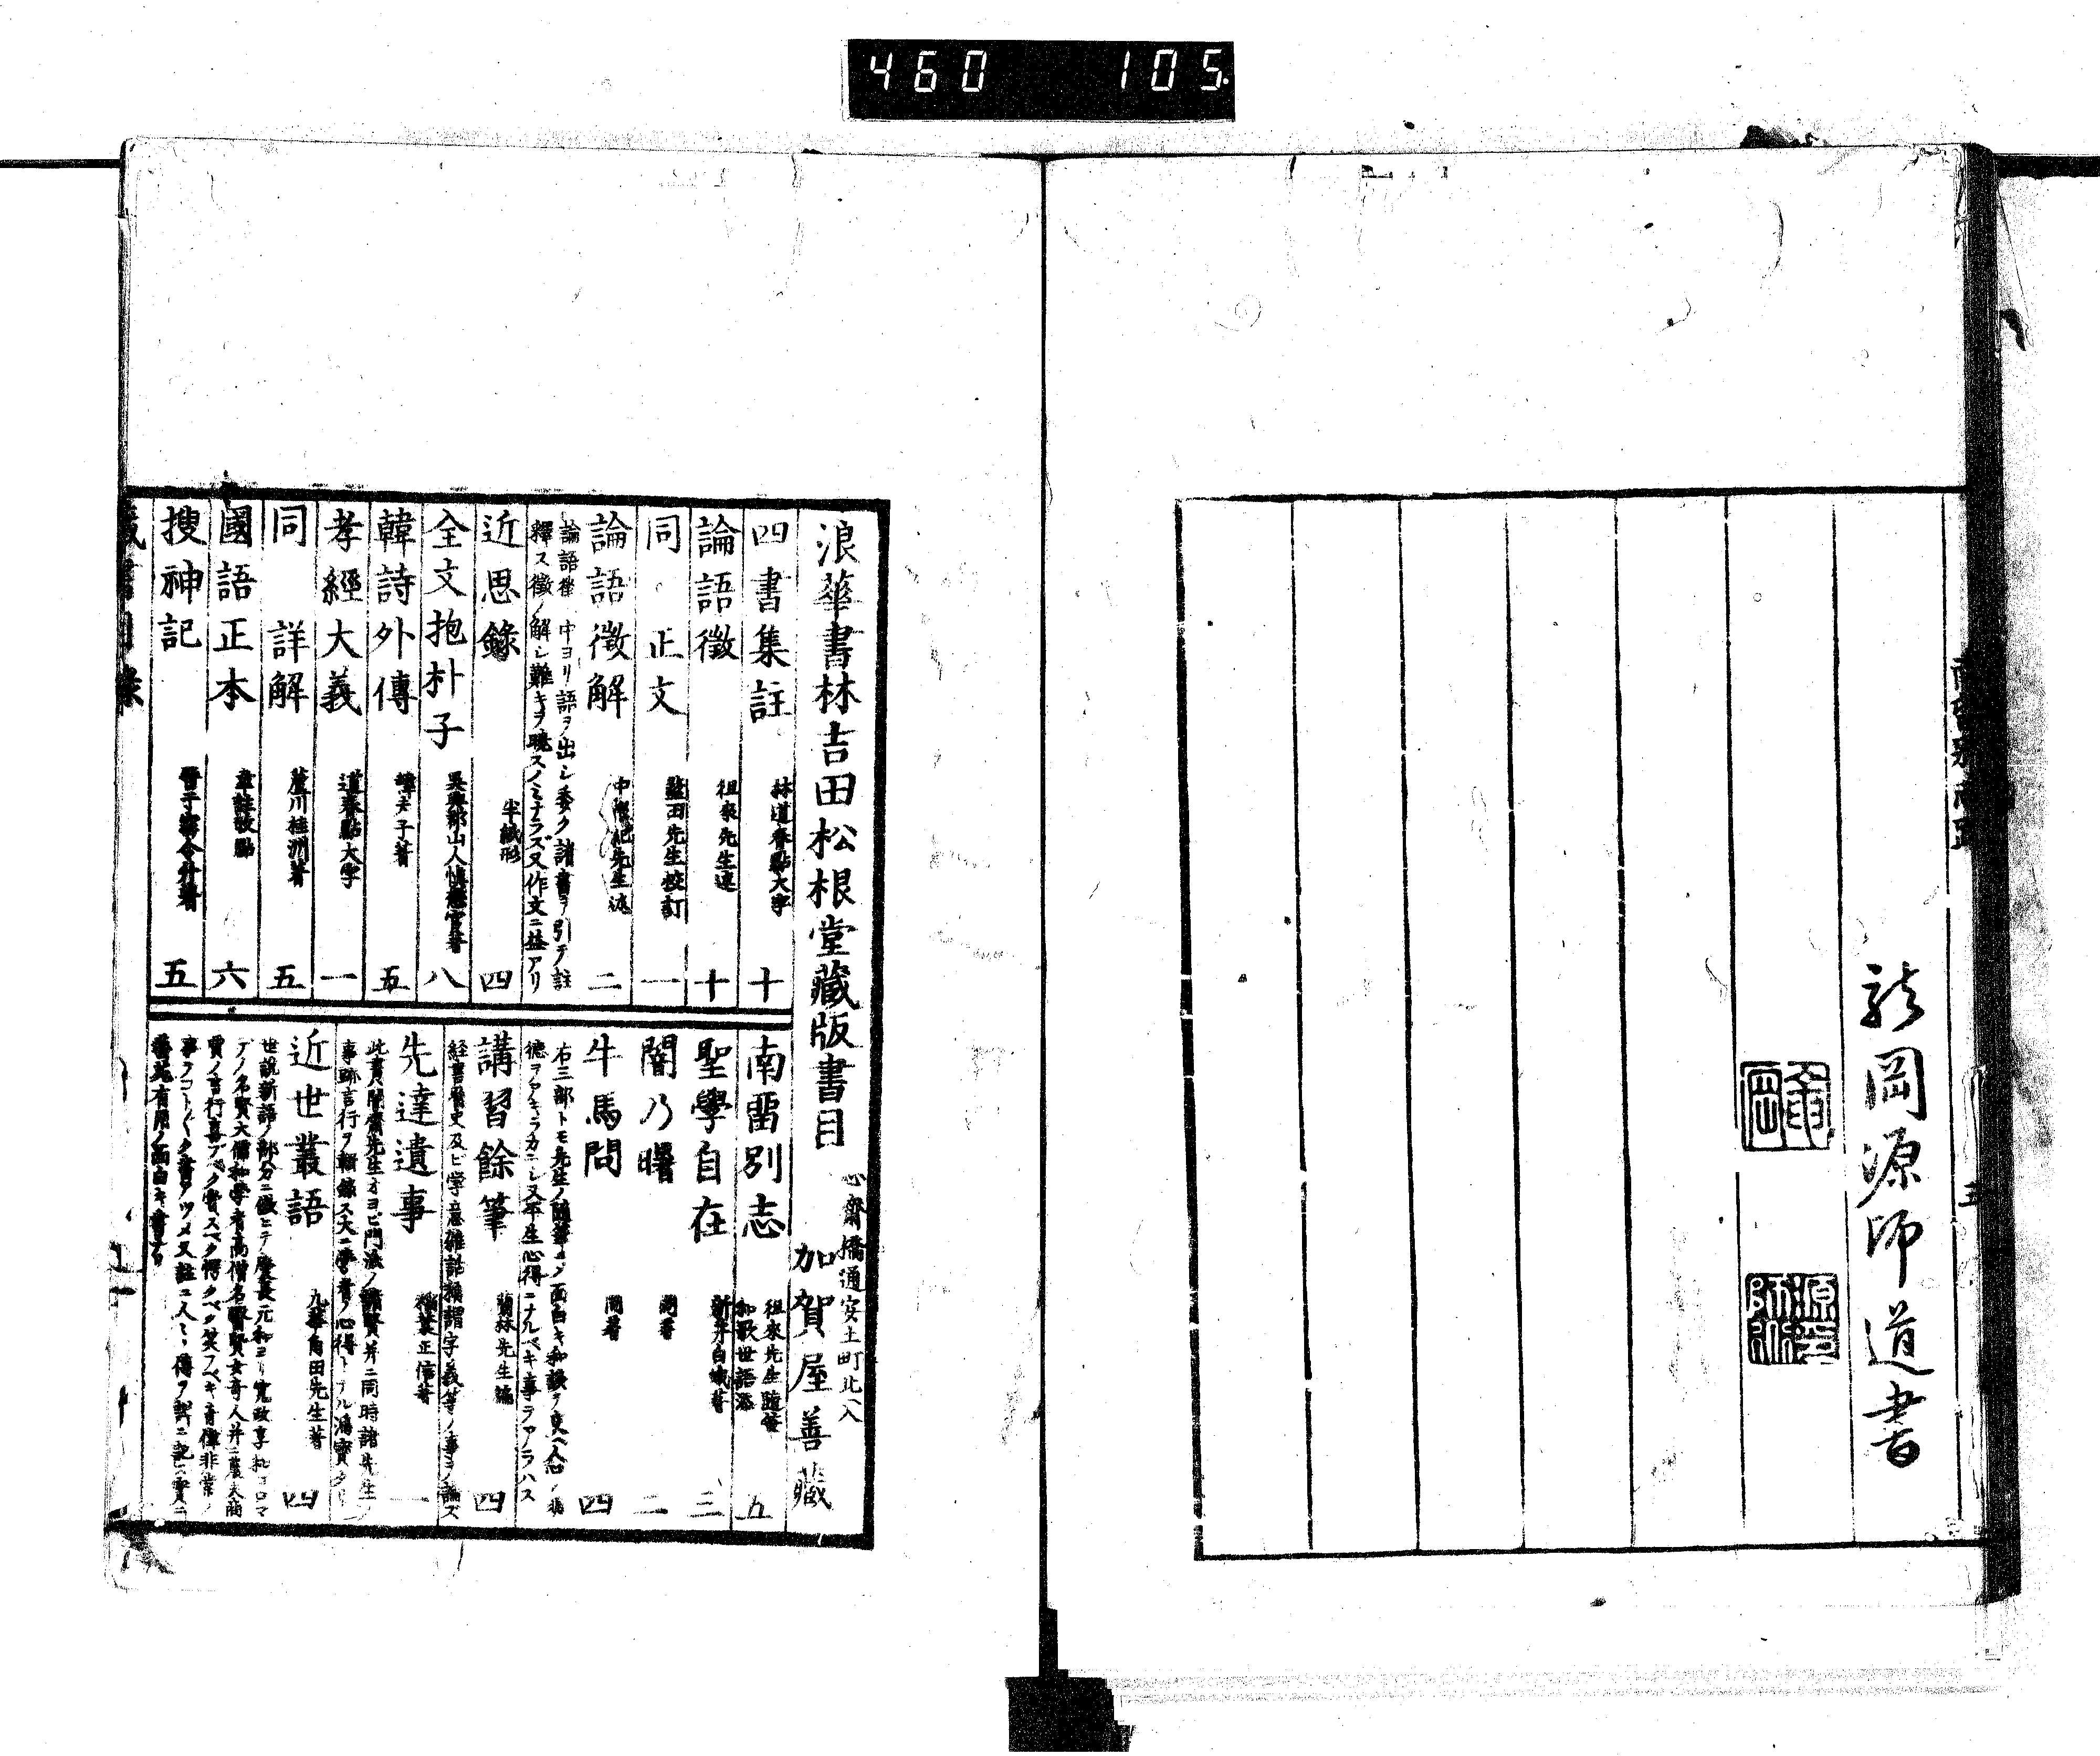 460 105
龍岡源師道書
浪華書林吉田松根堂藏版書目
心齋橋通安土町北ヘ入
加賀屋善藏
四書集註 林道春點大字 十
論語徵 徂來先生述 十
同 正文 藍田先生校訂 一
論語徵解 中根 先生述 二
論語徵 中ヨリ語ヲ出シ委ク諸書ヲ引テ註
釋ス徵ノ解シ難キヲ曉スノミナラズ又作文ニ益アリ
近思錄 半紙形 四
全文抱朴子 吳興郭山人愼懋官著 八
韓詩外傳 韓夫子著 五
孝經大義 道春點大字 一
同 詳解 蘆川桂洲著 五
國語正本 韋註敬點 六
搜神記 晉于寶令升著 五
南畱別志 徂來先生隨筆 五
聖學自在 新井白蛾著 三
闇乃曙 同著 二
牛馬問 同著 四
右三部トモ先生ノ隨筆ニメ面白キ和談ヲ交ヘ人心ノ
德ヲアキラカニシ又平生心得ニナルベキ事ヲアラハス
講習餘筆 蘭林先生編 四
経書歷史及ビ学意雜話稱謂字義等ノ事ヲ論ズ
先達遺事 稻葉正信著 一
此書闇齋先生オヨビ門流ノ諸賢并ニ同時諸先生ノ
事跡言行ヲ輯錄ス大ニ學者ノ心得トナル鴻寶ナリ
近世叢語 九華角田先生著 四
世說新語ノ部分ニ傚ヒテ慶長元和ヨリ寬政享和コロマ
デノ名賢大儒和学者高僧名醫賢女奇人并ニ農夫商
賈ノ言行喜ブベク賞スベク愕クベク笑フベキ奇偉非常ノ
事ヲコト〲ク書アツメ又註ニ人〻傳ヲ詳ニ記ス實ニ
番地有用ノ面白キ書ナリ
藏書目錄